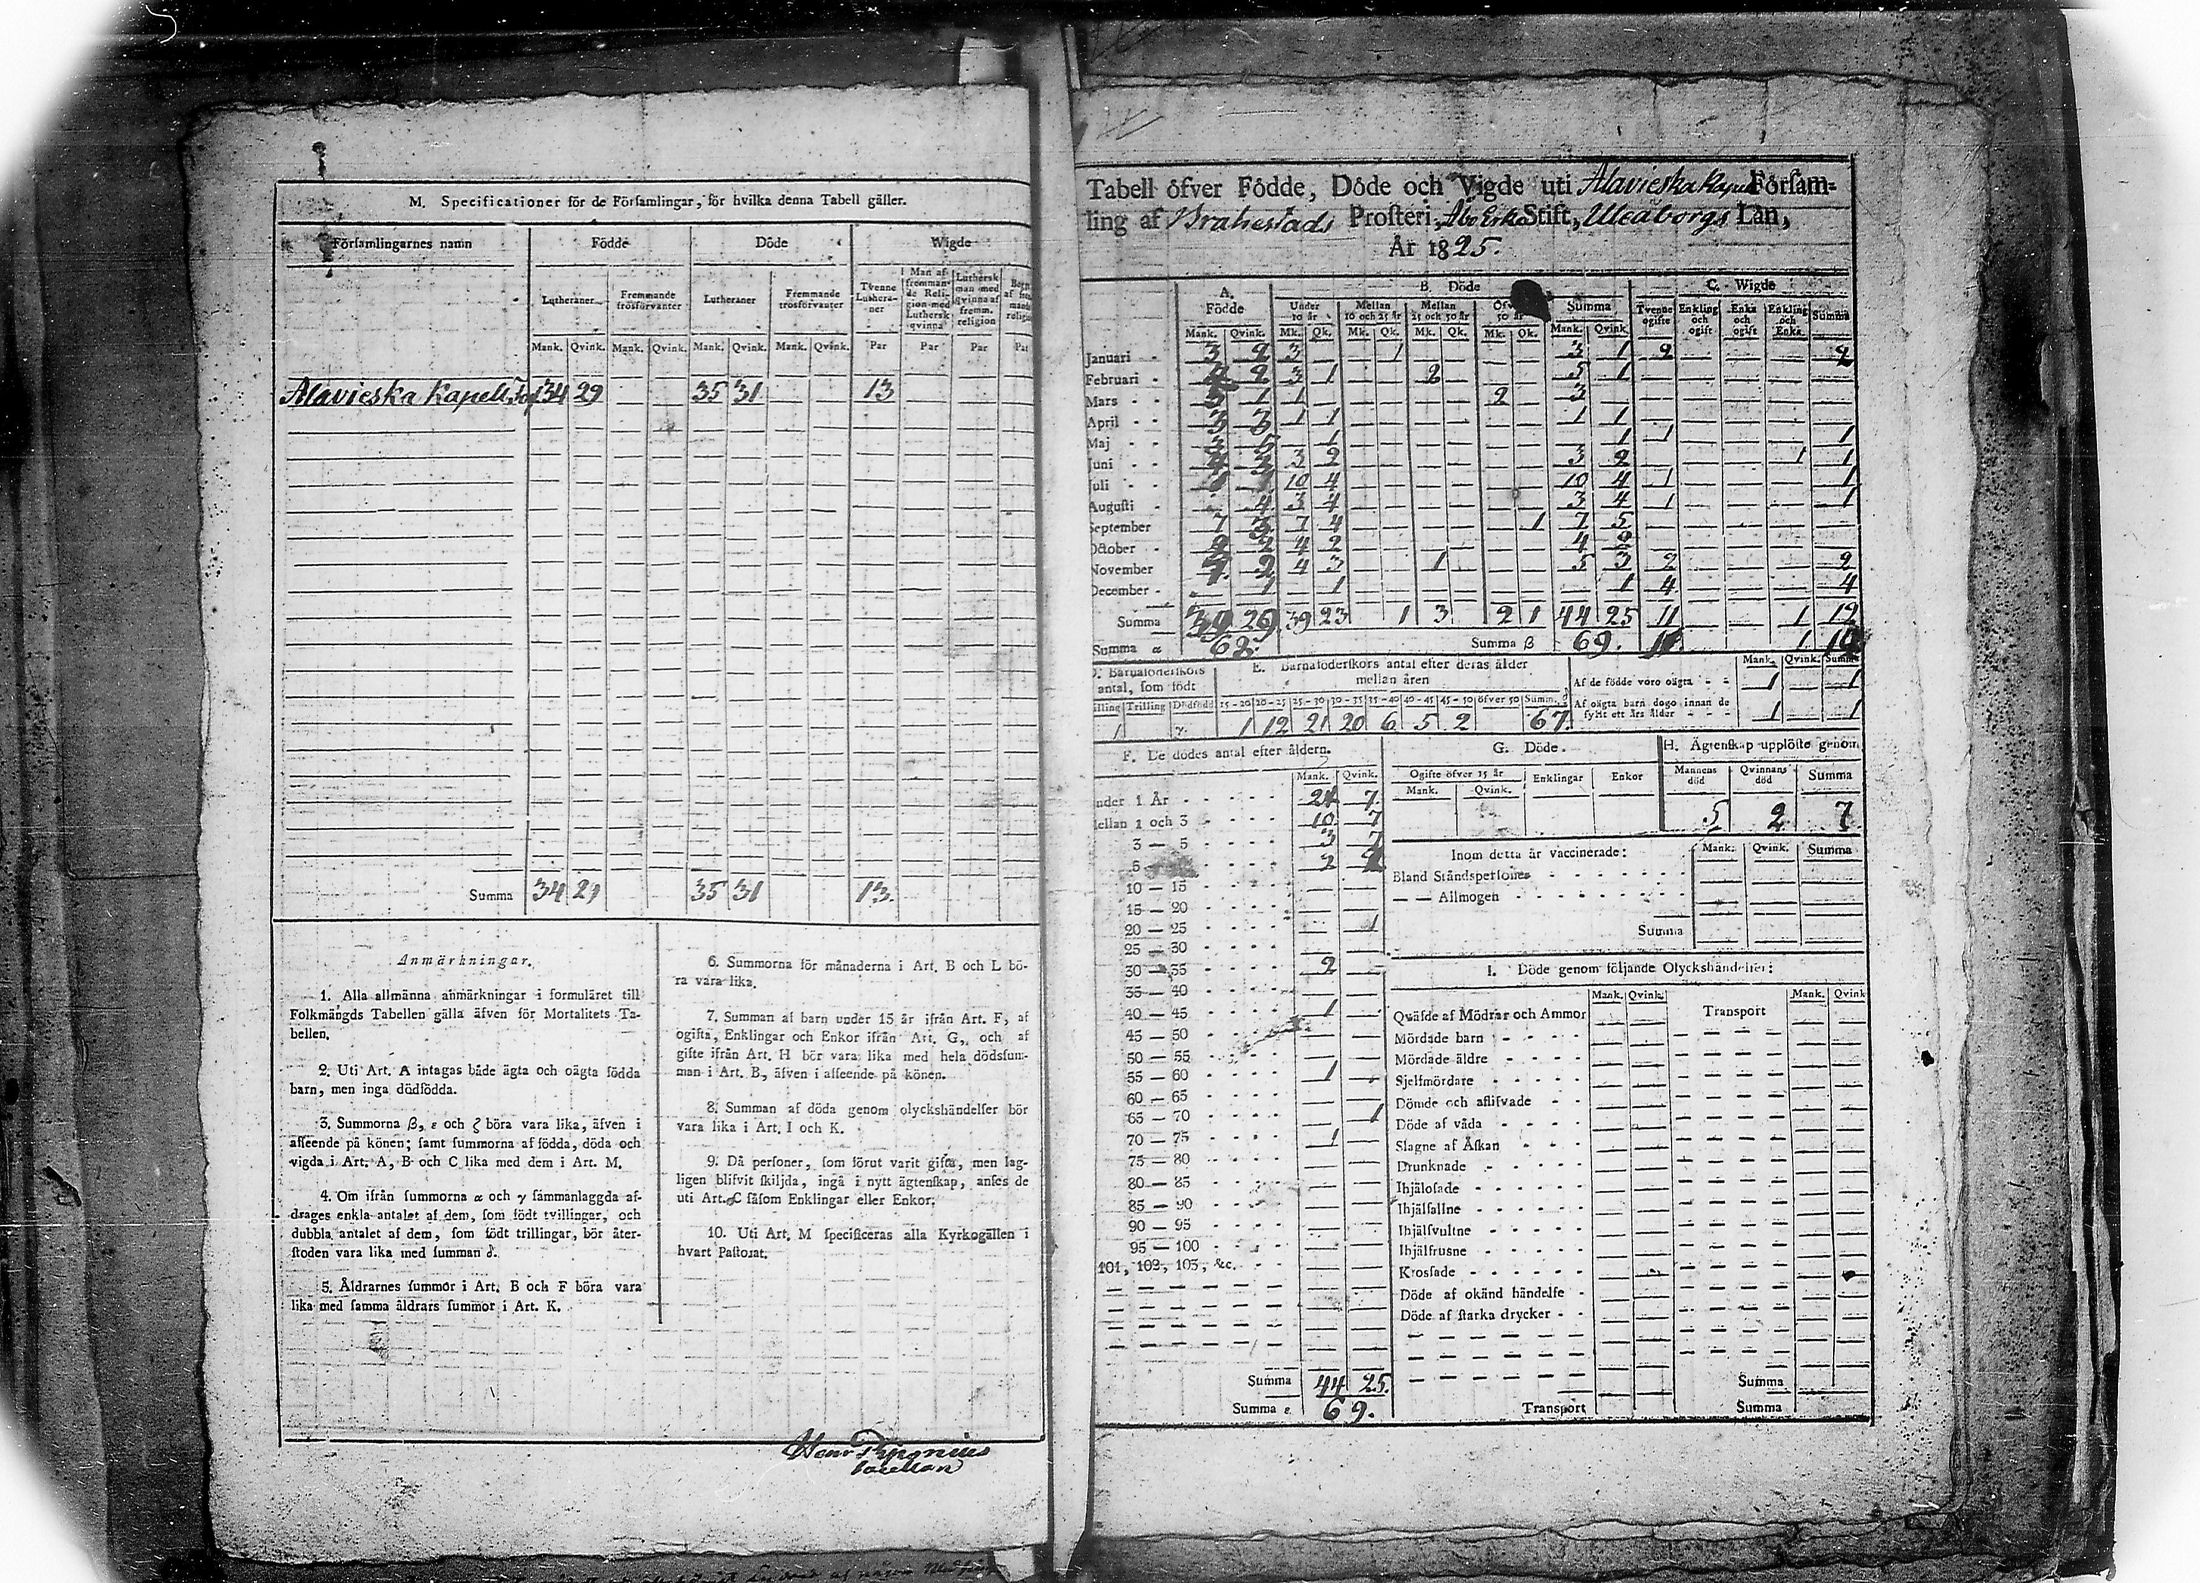 M. Specificationer för de Församlingar, för hvilka denna Tabell gäller.
Församlingarnes namn Födde Döde Wigde
Lutheraner Fremmande trosförvanter Lutheraner Fremmande trosförvanter Tvenne Lutheraner Man af fremmande Religion med Luthersk qvinna Luthersk man med qvinna af fremm. religion
Mank. Qvink. Mank. Qvink. Mank. Qvink. Mank. Qvink. Par Par Par Par
Alavieska Kapell 34 29 35 31 13
Summa 34 29 35 31 13.
Anmärkningar.
1. Alla allmänna anmärkningar i formuläret till
Folkmängds Tabellen gälla äfven för Mortalitets Ta-
bellen.
2. Uti Art. A intagas både ägta och oägta födda
barn, men inga dödfödda.
3. Summorna β, ε och ζ böra vara lika, äfven i
afseende på könen; samt summorna af födda, döda och
vigda i Art. A, B och C lika med dem i Art. M.
4. Om ifrån summorna α och γ sammanlaggda af-
drages enkla antalet af dem, som födt tvillingar, och
dubbla antalet af dem, som födt trillingar, bör åter-
stoden vara lika med summan δ.
5. Åldrarnes summor i Art. B och F böra vara
lika med samma åldrars summor i Art. K.
6. Summorna för månaderna i Art. B och L bö-
ra vara lika.
7. Summan af barn under 15 år ifrån Art. F, af
ogifta, Enklingar och Enkor ifrån Art. G, och af
gifte ifrån Art. H bör vara lika med hela dödssum-
man i Art. B, äfven i afseende på könen.
8. Summan af döda genom olyckshändelser bör
vara lika i Art. I och K.
9. Då personer, som förut varit gifta, men lag-
ligen blifvit skiljda, ingå i nytt ägtenskap, anses de
uti Art. C såsom Enklingar eller Enkor.
10. Uti Art. M specificeras alla Kyrkogällen i
hvart Pastorat.
Tabell öfver Födde, Döde och Vigde uti Alavieska Kapell Försam-
ling af Brahestads Prosteri, Åbo Erke Stift, Uleåborgs Län,
År 1825.
A. Födde B. Döde C. Wigde
Under 10 år Mellan 10 och 25 år Mellan 25 och 50 år 50 år Summa Tvenne ogifte Enkling och ogift Enka och ogift Enkling och Enka Summa
Mank. Qvink. Mk. Qk. Mk. Qk. Mk. Qk. Mk. Qk. Mank. Qvink.
Januari 3 2 3 1 3 1 2 2
Februari 2 3 1 2 5 1
Mars 1 1 2 3
April 3 3 1 1 1 1
Maj 3 5 1 1 1 1
Juni 3 2 3 2 1 1
Juli 10 4 10 4 1 1
Augusti 4 3 4 3 4 1 1
September 7 3 7 4 1 7 5
October 2 4 2 4 2
November 2 4 3 1 5 3 2 2
December 1 1 1 4 4
Summa 39 23 1 3 2 1 44 25 11 1 12
Summa α Summa β 69. 1
D. Barnaföderskors antal, som födt
Trilling Dödfödd
E. Barnaföderskors antal efter deras ålder
mellan åren
15-20 20-25 25-30 30-35 35-40 40-45 45-50 öfver 50 Summ. δ
1 12 21 20 6 5 2 67.
Mank. Qvink. Summa
Af de födde voro oägta 1 1
Af oägta barn dogo innan de
fyllt ett års ålder 1 1
F. De dödes antal efter åldern.
Mank. Qvink.
1 År 21 7
1 och 3 10 7
3 — 5 3 7
5 2
10 — 15
15 — 20
20 — 25 1
25 — 30
30 — 35 2
35 — 40
40 — 45 1
45 — 50
50 — 55
55 — 60 1
60 — 65
65 — 70 1
70 — 75 1
75 — 80
80 — 85
85 — 90
90 — 95
95 — 100
101, 102, 103, &c.
Summa 44 25.
Summa ε 69.
G. Döde.
Ogifte öfver 15 år Enklingar Enkor
Mank. Qvink.
H. Ägtenskap upplöste genom
Mannens död Qvinnans död Summa
5 2 7
Inom detta år vaccinerade: Mank. Qvink. Summa
Bland Ståndspersoner
— — Allmogen
Summa
I. Döde genom följande Olyckshändelser:
Mank. Qvink. Mank. Qvink
Qwäfde af Mödrar och Ammor Transport
Mördade barn
Mördade äldre
Sjelfmördare
Dömde och aflifvade
Döde af våda
Slagne af Åskan
Drunknade
Ihjälosade
Ihjälfallne
Ihjälsvultne
Ihjälfrusne
Krossade
Döde af okänd händelse
Döde af starka drycker
Summa
Transport Summa